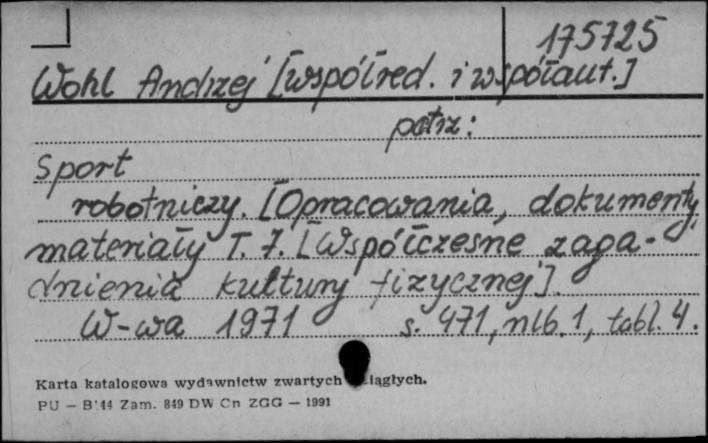 175725
Wohl Andrzej [współred. i współaut.]
patrz:
Sport
robotniczy. [Opracowania, dokumenty,
materiały T. 7. [Współczesne zaga-
dnienia kultury fizycznej].
W-wa 1971 s. 471, nlb. 1, tabl. 4.
Karta katalogowa wydawnictw zwartych ciągłych.
PU — B'44 Zam. 849 DW Cn ZGG — 1991